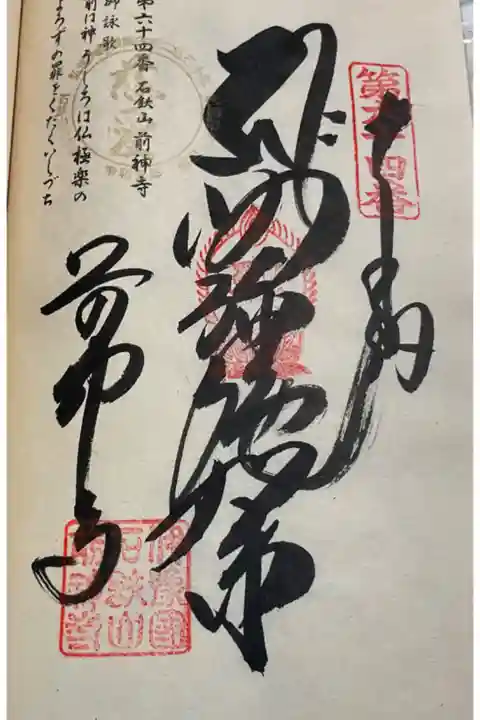 第六十四番
奉納
阿弥陀如来
前神寺
伊豫國
石鈇山
前神寺
第六十四番 石鈇山 前神寺
御詠歌
前は神うしろは仏極楽の
よろずの罪をくだくいしづち